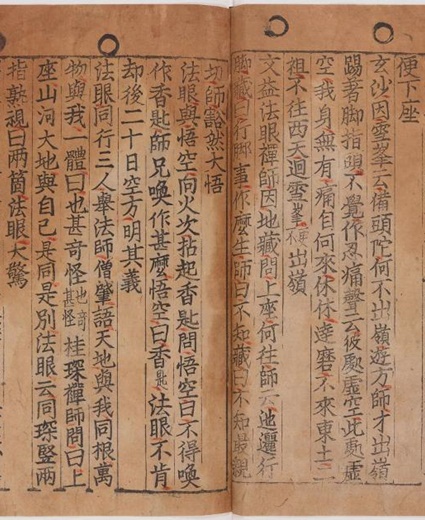 便下座
玄沙因雪峯云備頭陀何不出嶺遊方師才出嶺
踢著脚指頭不覺作忍痛聲云彼處虛空此處虛
空我身無有痛自何來休休達磨不來東土二
祖不往西天迴雪峯不出嶺
文益法眼禪師因地藏問上座何往師云迤邐行
脚藏曰行脚事作麽生師曰不知藏曰不知最親
切師豁然大悟
法眼與悟空向火次拈起香匙問悟空曰不得喚
作香匙師兄喚作甚麽悟空曰香匙法眼不肯
却後二十日空方明其義
法眼同行三人擧法師僧肇語天地與我同根萬
物與我一體曰也甚奇怪也奇甚怪桂琛禪師問曰上
座山河大地與自己是同是別法眼云同琛竪兩
指熟視曰兩箇法眼大驚